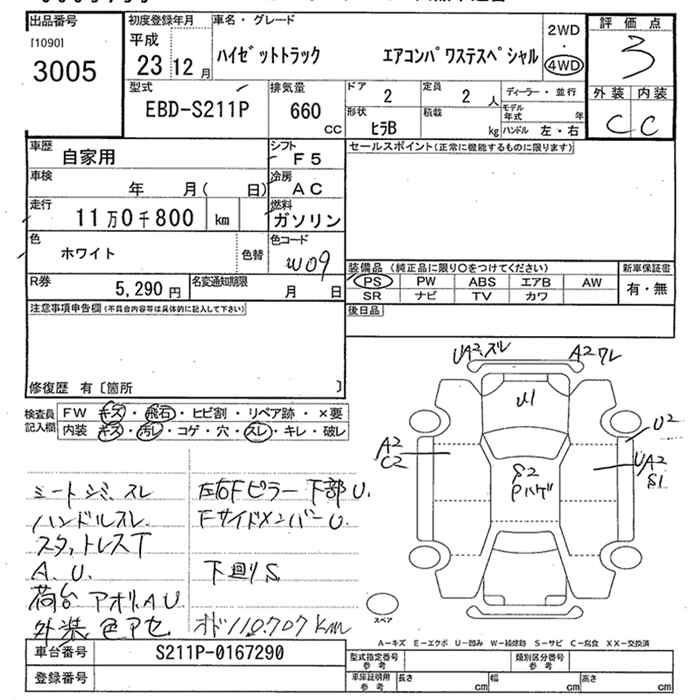 出品番号
[1090]
3005
初度登録年月
平成
23 12 月
車名・グレード
ハイゼットトラック エアコンパワステスペシャル
2WD
・
4WD
評価点
3
外装 内装
C C
型式
EBD-S211P
排気量
660
CC
ドア
2
定員
2 人
形状
ヒラB
積載
kg
ディーラー・並行
モデル年式 年
ハンドル 左・右
車歴
自家用
シフト
F5
車検
年 月( 日)
冷房
AC
走行
11万0千800 km
燃料
ガソリン
色
ホワイト
色替
色コード
W09
R券
5,290 円
名変通知期限
月 日
セールスポイント(正常に機能するものに限ります)
装備品 (純正品に限り○をつけてください)
PS PW ABS エアB AW
SR ナビ TV カワ
新車保証書
有・無
後日品
注意事項申告欄(不具合内容等は具体的に記入して下さい)
修復歴 有〔箇所 〕
検査員記入欄
FW キズ・飛石・ヒビ割・リペア跡・×要
内装 キズ・汚レ・コゲ・穴・スレ・キレ・破レ
シートシミ、スレ
ハンドルスレ
スタットレスT
A.U.
荷台 アオリ.A U
外装 色アセ
左右Fピラー下部U.
FサイドメンバーU.
下廻りS
オド110.707km
UA2.ズレ
A2ワレ
U1
U2
A2
C2
UA2
S1
S2
Pハゲ
スペア
A-キズ E-エクボ U-凹み W-補修跡 S-サビ C-腐食 XX-交換済
車台番号
S211P-0167290
登録番号
型式指定番号
参考
類別区分番号
参考
車庫証明用
参考
長さ cm
幅 cm
高さ cm